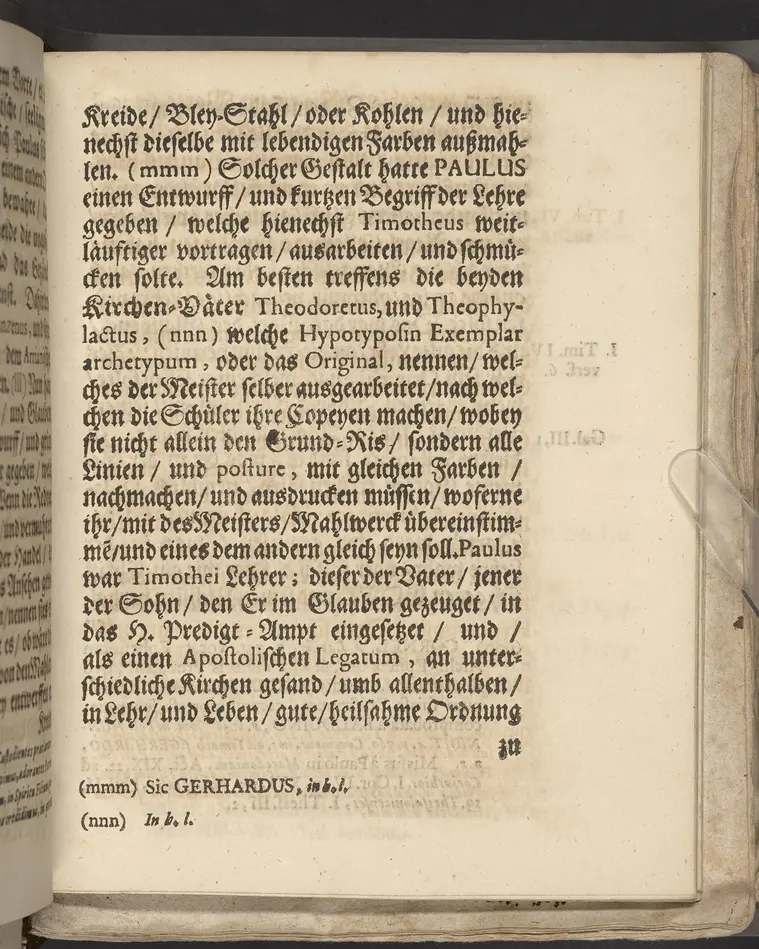 Kreide/ Bley-Stahl/ oder Kohlen / und hie-
nechst dieselbe mit lebendigen Farben außmah-
len. (mmm) Solcher Gestalt hatte PAULUS
einen Entwurff/ und kurtzen Begriff der Lehre
gegeben / welche hienechst Timotheus weit-
läuftiger vortragen/ ausarbeiten/ und schmü-
cken solte. Am besten treffens die beyden
Kirchen-Väter Theodoretus, und Theophy-
lactus, (nnn) welche Hypotyposin Exemplar
archetypum, oder das Original, nennen/ wel-
ches der Meister selber ausgearbeitet/nach wel-
chen die Schüler ihre Copeyen machen/ wobey
sie nicht allein den Grund-Ris/ sondern alle
Linien / und posture, mit gleichen Farben /
nachmachen/ und ausdrucken müssen/ woferne
ihr/mit des Meisters/Mahlwerck übereinstim-
mē/und eines dem andern gleich seyn soll. Paulus
war Timothei Lehrer; dieser der Vater/ jener
der Sohn/ den Er im Glauben gezeuget/ in
das H. Predigt-Ampt eingesetzet / und /
als einen Apostolischen Legatum, an unter-
schiedliche Kirchen gesand/ umb allenthalben/
in Lehr/ und Leben/ gute/heilsahme Ordnung
zu
(mmm) Sic GERHARDUS, in h. l.
(nnn) In h. l.